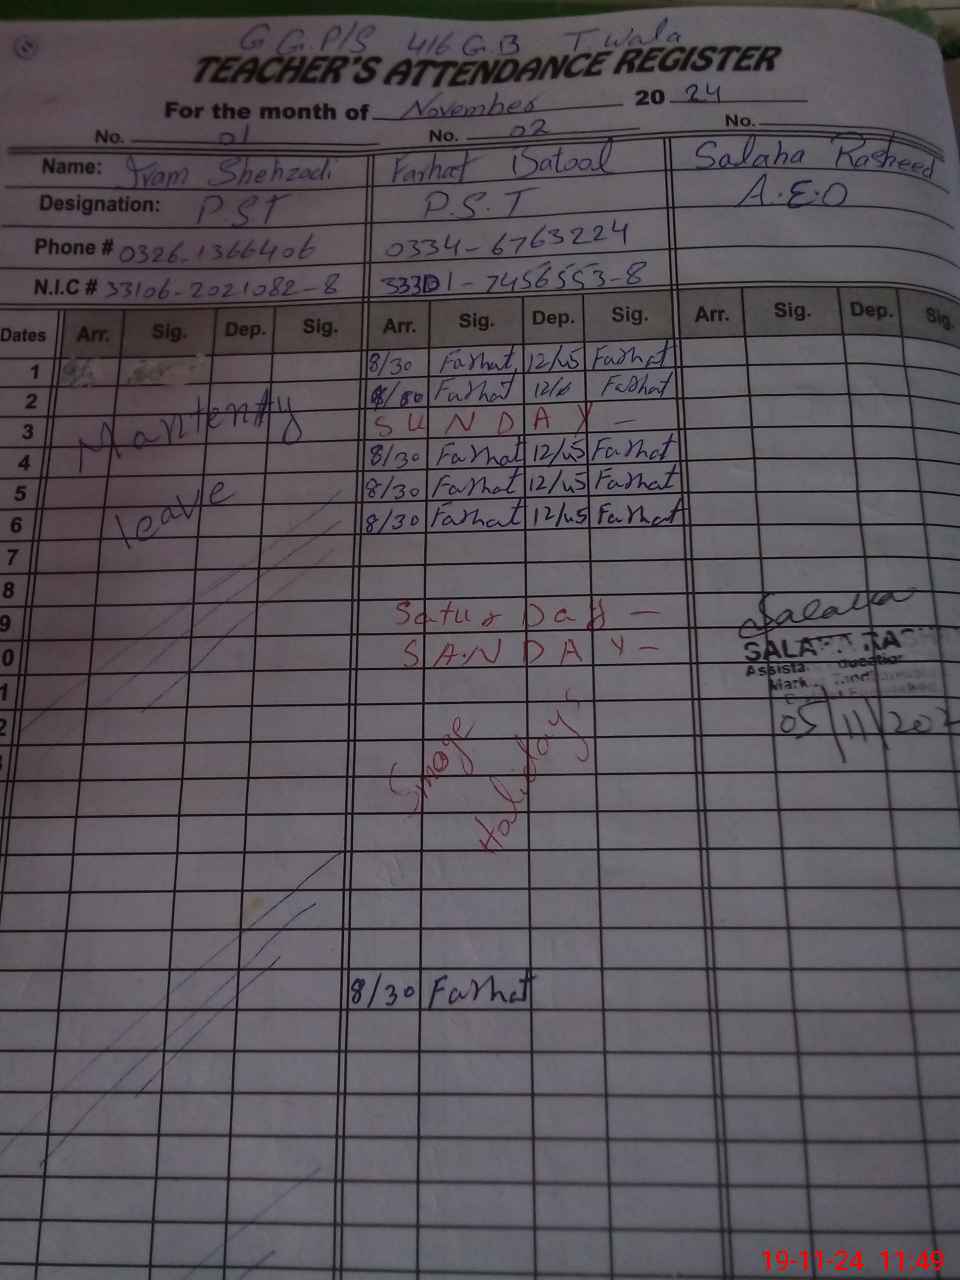 G G.P/S 416 G.B T wala
TEACHER'S ATTENDANCE REGISTER
For the month of November 20 24
No. 01 No. 02 No.
Name: Iram Shehzadi Farhat Batool Salaha Rasheed
Designation: PST P.S.T A.E.O
Phone # 0326-1366406 0334-6763224
N.I.C # 33106-2021082-8 33301-7456553-8
Dates Arr. Sig. Dep. Sig. Arr. Sig. Dep. Sig. Arr. Sig. Dep. Sig.
1 8/30 Farhat 12/45 Farhat
2 8/30 Farhat Farhat
Mantenty
3 SUNDAY —
4 8/30 Farhat 12/45 Farhat
5 8/30 Farhat 12/45 Farhat
leave
6 8/30 Farhat 12/45 Farhat
7
8
9 Satur Day —
Salaha
0 SANDAY —
1
2 05/11/202
Smoge
Halidays
8/30 Farhat
19-11-24 11:49